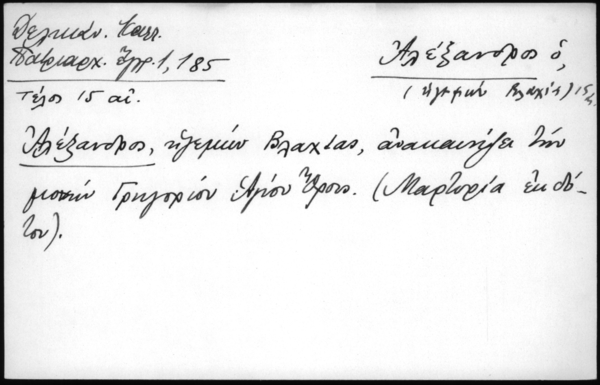 Δελικάν. Κατ.
Πατριαρχ. Ἔγγρ. 1, 185
Τέλος 15 αἰ.
Ἀλέξανδρος ὁ,
(ἡγεμών Βλαχίας)
Ἀλέξανδρος, ἡγεμών Βλαχίας, ἀνακαινίζει τήν
μονήν Γρηγορίου Ἁγίου Ὄρους. (Μαρτυρία ἐκδό-
του).